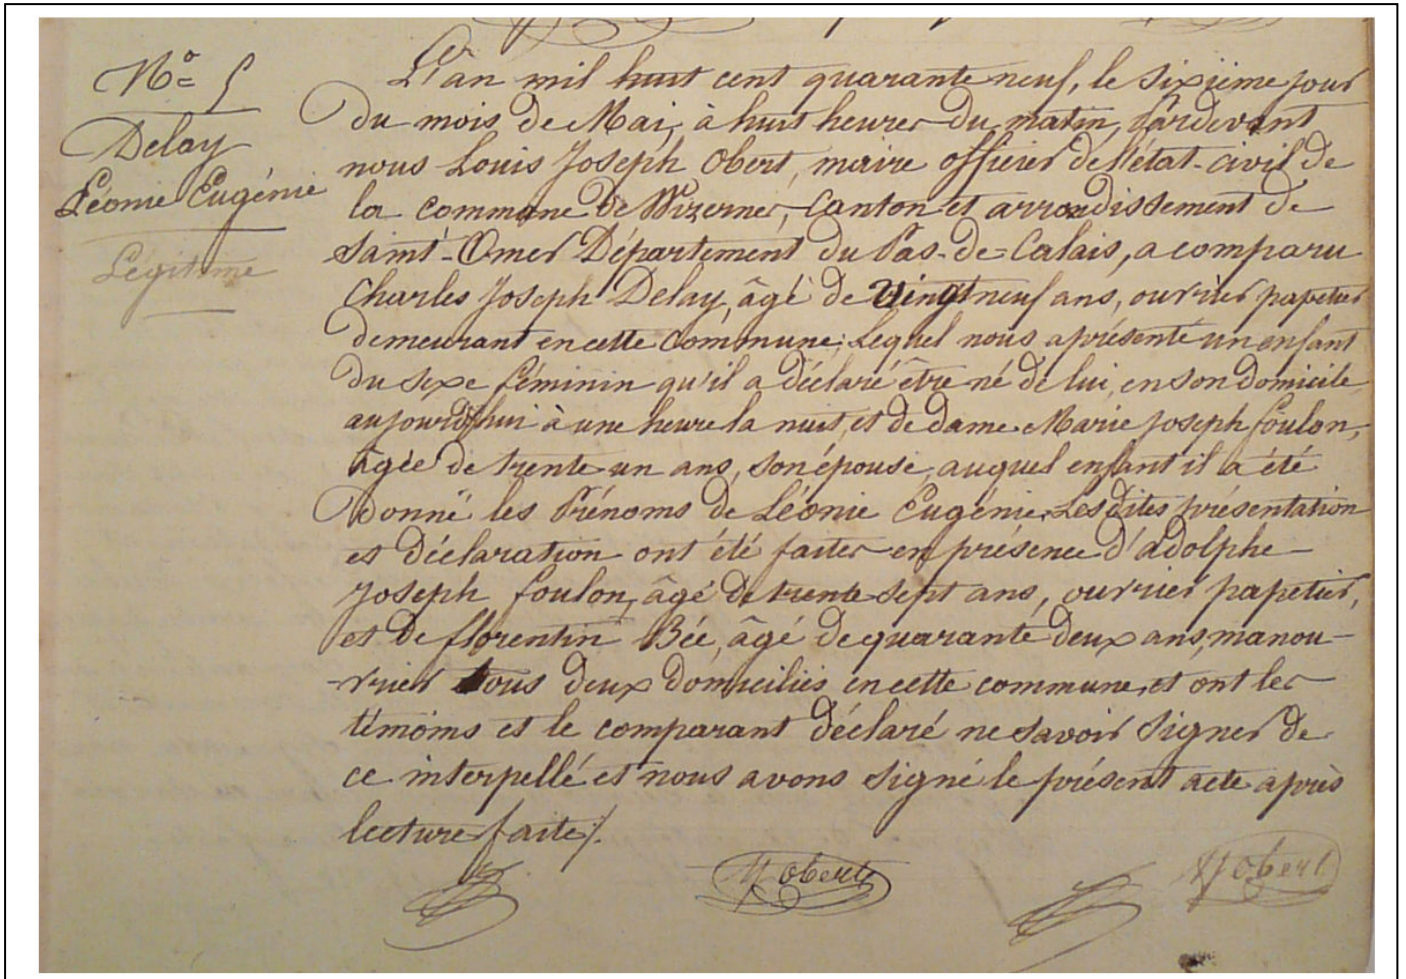 N° 5
Delay
Léonie Eugénie
Légitime
L'an mil huit cent quarante neuf, le sixième jour
du mois de Mai, à huit heures du matin, Pardevant
nous Louis Joseph Obert, maire officier de l'état-civil de
la commune de Wizernes, Canton et arrondissement de
Saint-Omer Département du Pas-de-Calais, a comparu
Charles Joseph Delay, âgé de vingt neuf ans, ouvrier papetier
demeurant en cette commune; Lequel nous a présenté un enfant
du sexe féminin qu'il a déclaré être né de lui, en son domicile
aujourd'hui à une heure la nuit, et de dame Marie Joseph Foulon,
âgée de trente un ans, son épouse, auquel enfant il a été
donné les Prénoms de Léonie Eugénie. Les dites présentation
et déclaration ont été faites en présence d'adolphe
Joseph foulon, âgé de trente sept ans, ouvrier papetier,
et de florentin Bée, âgé de quarante deux ans, manou-
-vrier tous deux domiciliés en cette commune, et ont les
témoins et le comparant déclaré ne savoir signer de
ce interpellé et nous avons signé le présent acte après
lecture faite /.
Obert
Obert